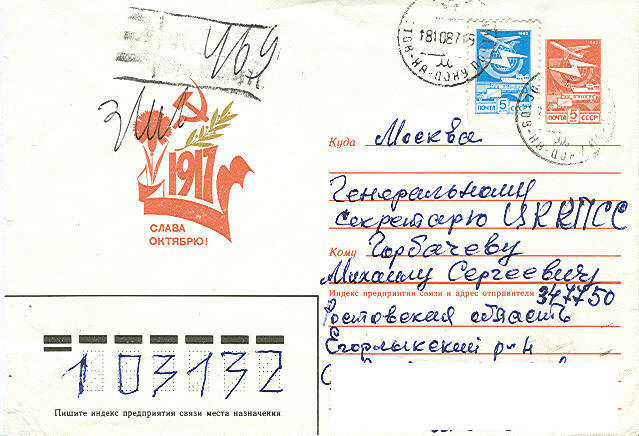 469
1917
СЛАВА
ОКТЯБРЮ!
ПОЧТА 5 СССР
ПОЧТА 5 СССР
Куда Москва
Генеральному
секретарю ЦК КПСС
Кому Горбачеву
Михаилу Сергеевичу
Индекс предприятия связи и адрес отправителя 347750
Ростовская область
Егорлыкский р-н
103132
Пишите индекс предприятия связи места назначения